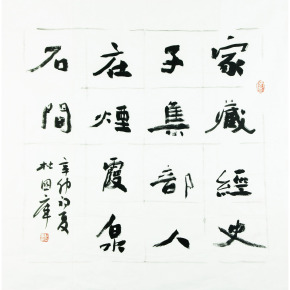 家藏經史
子集部人
在煙霞泉
石間
辛卯初夏
杜国